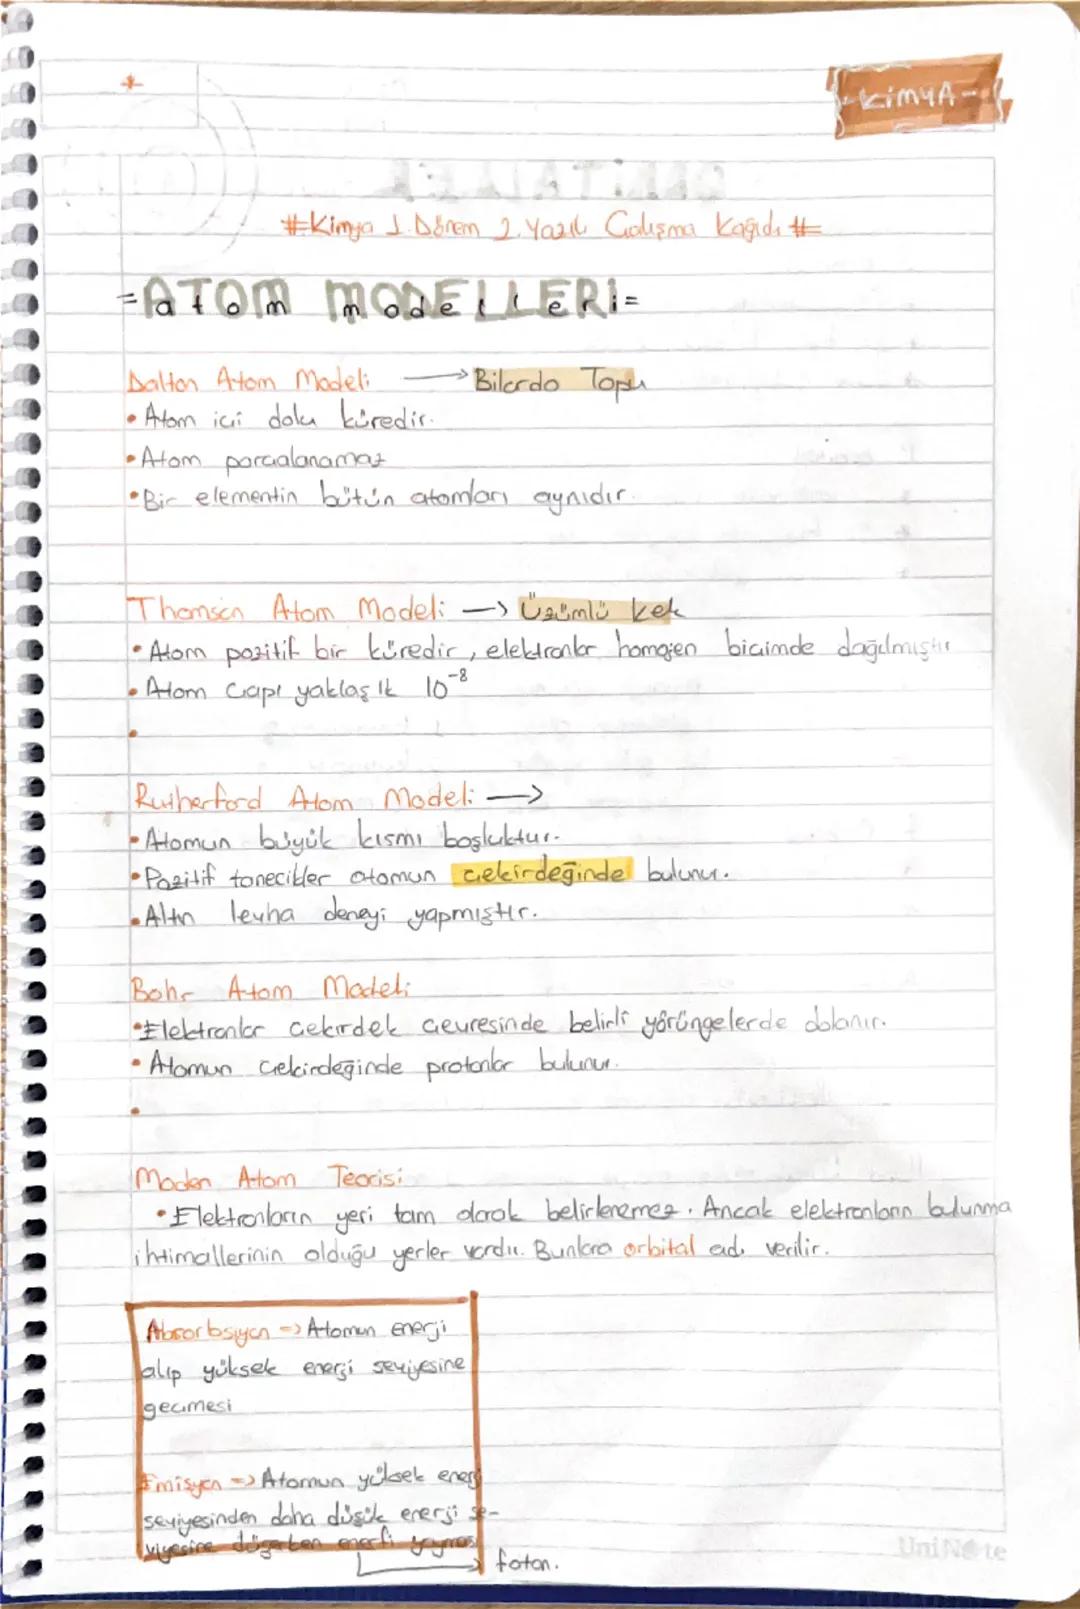 -KİMYA-
#Kimya 1. Dönem 2. Yazılı Çalışma Kağıdı #
=ATOM MODELLERİ=
Dalton Atom Modeli → Bilardo Topu
• Atom içi dolu küredir.
• Atom parçalanamaz
• Bir elementin bütün atomları aynıdır.
Thomson Atom Modeli → Üzümlü kek
• Atom pozitif bir küredir, elektronlar homojen biçimde dağılmıştır
• Atom çapı yaklaşık 10⁻⁸
•
Rutherford Atom Modeli →
• Atomun büyük kısmı boşluktur.
• Pozitif tanecikler atomun çekirdeğinde bulunur.
• Altın levha deneyi yapmıştır.
Bohr Atom Modeli
• Elektronlar çekirdek çevresinde belirli yörüngelerde dolanır.
• Atomun çekirdeğinde protonlar bulunur.
•
Modern Atom Teorisi
• Elektronların yeri tam olarak belirlenemez. Ancak elektronların bulunma
ihtimallerinin olduğu yerler vardır. Bunlara orbital adı verilir.
Absorbsiyon => Atomun enerji
alıp yüksek enerji seviyesine
geçmesi
Emisyon => Atomun yüksek enerji
seviyesinden daha düşük enerji se-
viyesine düşerken enerji yayması
→ foton.
UniNote